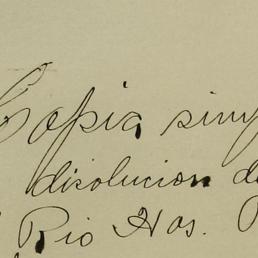 Copia simp
disolucion de
Rio Hos.